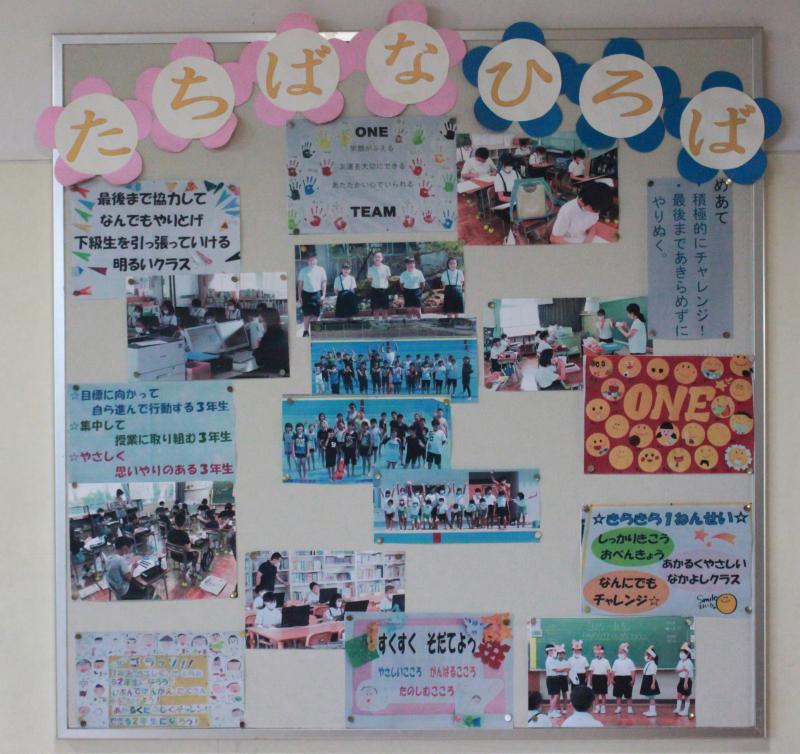 たちばなひろば
ONE
笑顔がふえる
友達を大切にできる
あたたかい心でいられる
TEAM
最後まで協力して
なんでもやりとげ
下級生を引っ張っていける
明るいクラス
めあて
・積極的にチャレンジ！
・最後まであきらめずに
やりぬく。
☆目標に向かって
自ら進んで行動する3年生
☆集中して
授業に取り組む3年生
☆やさしく
思いやりのある3年生
ONE
☆きらきら1ねんせい☆
しっかりきこう
おべんきょう
あかるくやさしい
なかよしクラス
なんにでも
チャレンジ☆
Smile
すくすく そだてよう
やさしいこころ がんばるこころ
たのしむこころ